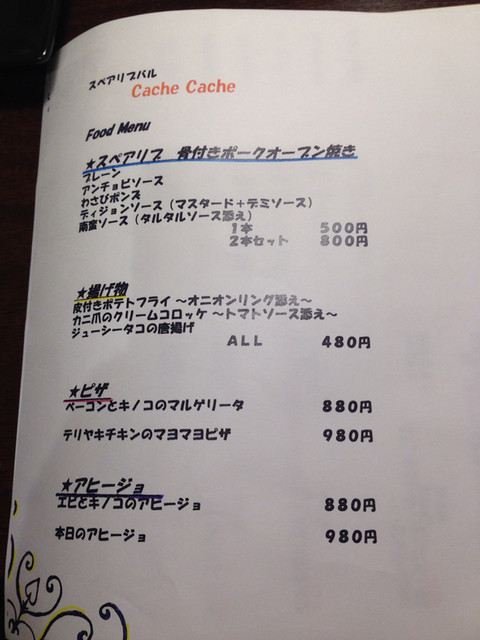 スペアリブバル
Cache Cache
Food Menu
★スペアリブ 骨付きポークオーブン焼き
プレーン
アンチョビソース
わさびポンズ
ディジョンソース（マスタード＋デミソース）
南蛮ソース（タルタルソース添え）
1本 500円
2本セット 800円
★揚げ物
皮付きポテトフライ ～オニオンリング添え～
カニ爪のクリームコロッケ ～トマトソース添え～
ジューシータコの唐揚げ
ALL 480円
★ピザ
ベーコンとキノコのマルゲリータ 880円
テリヤキチキンのマヨマヨピザ 980円
★アヒージョ
エビとキノコのアヒージョ 880円
本日のアヒージョ 980円